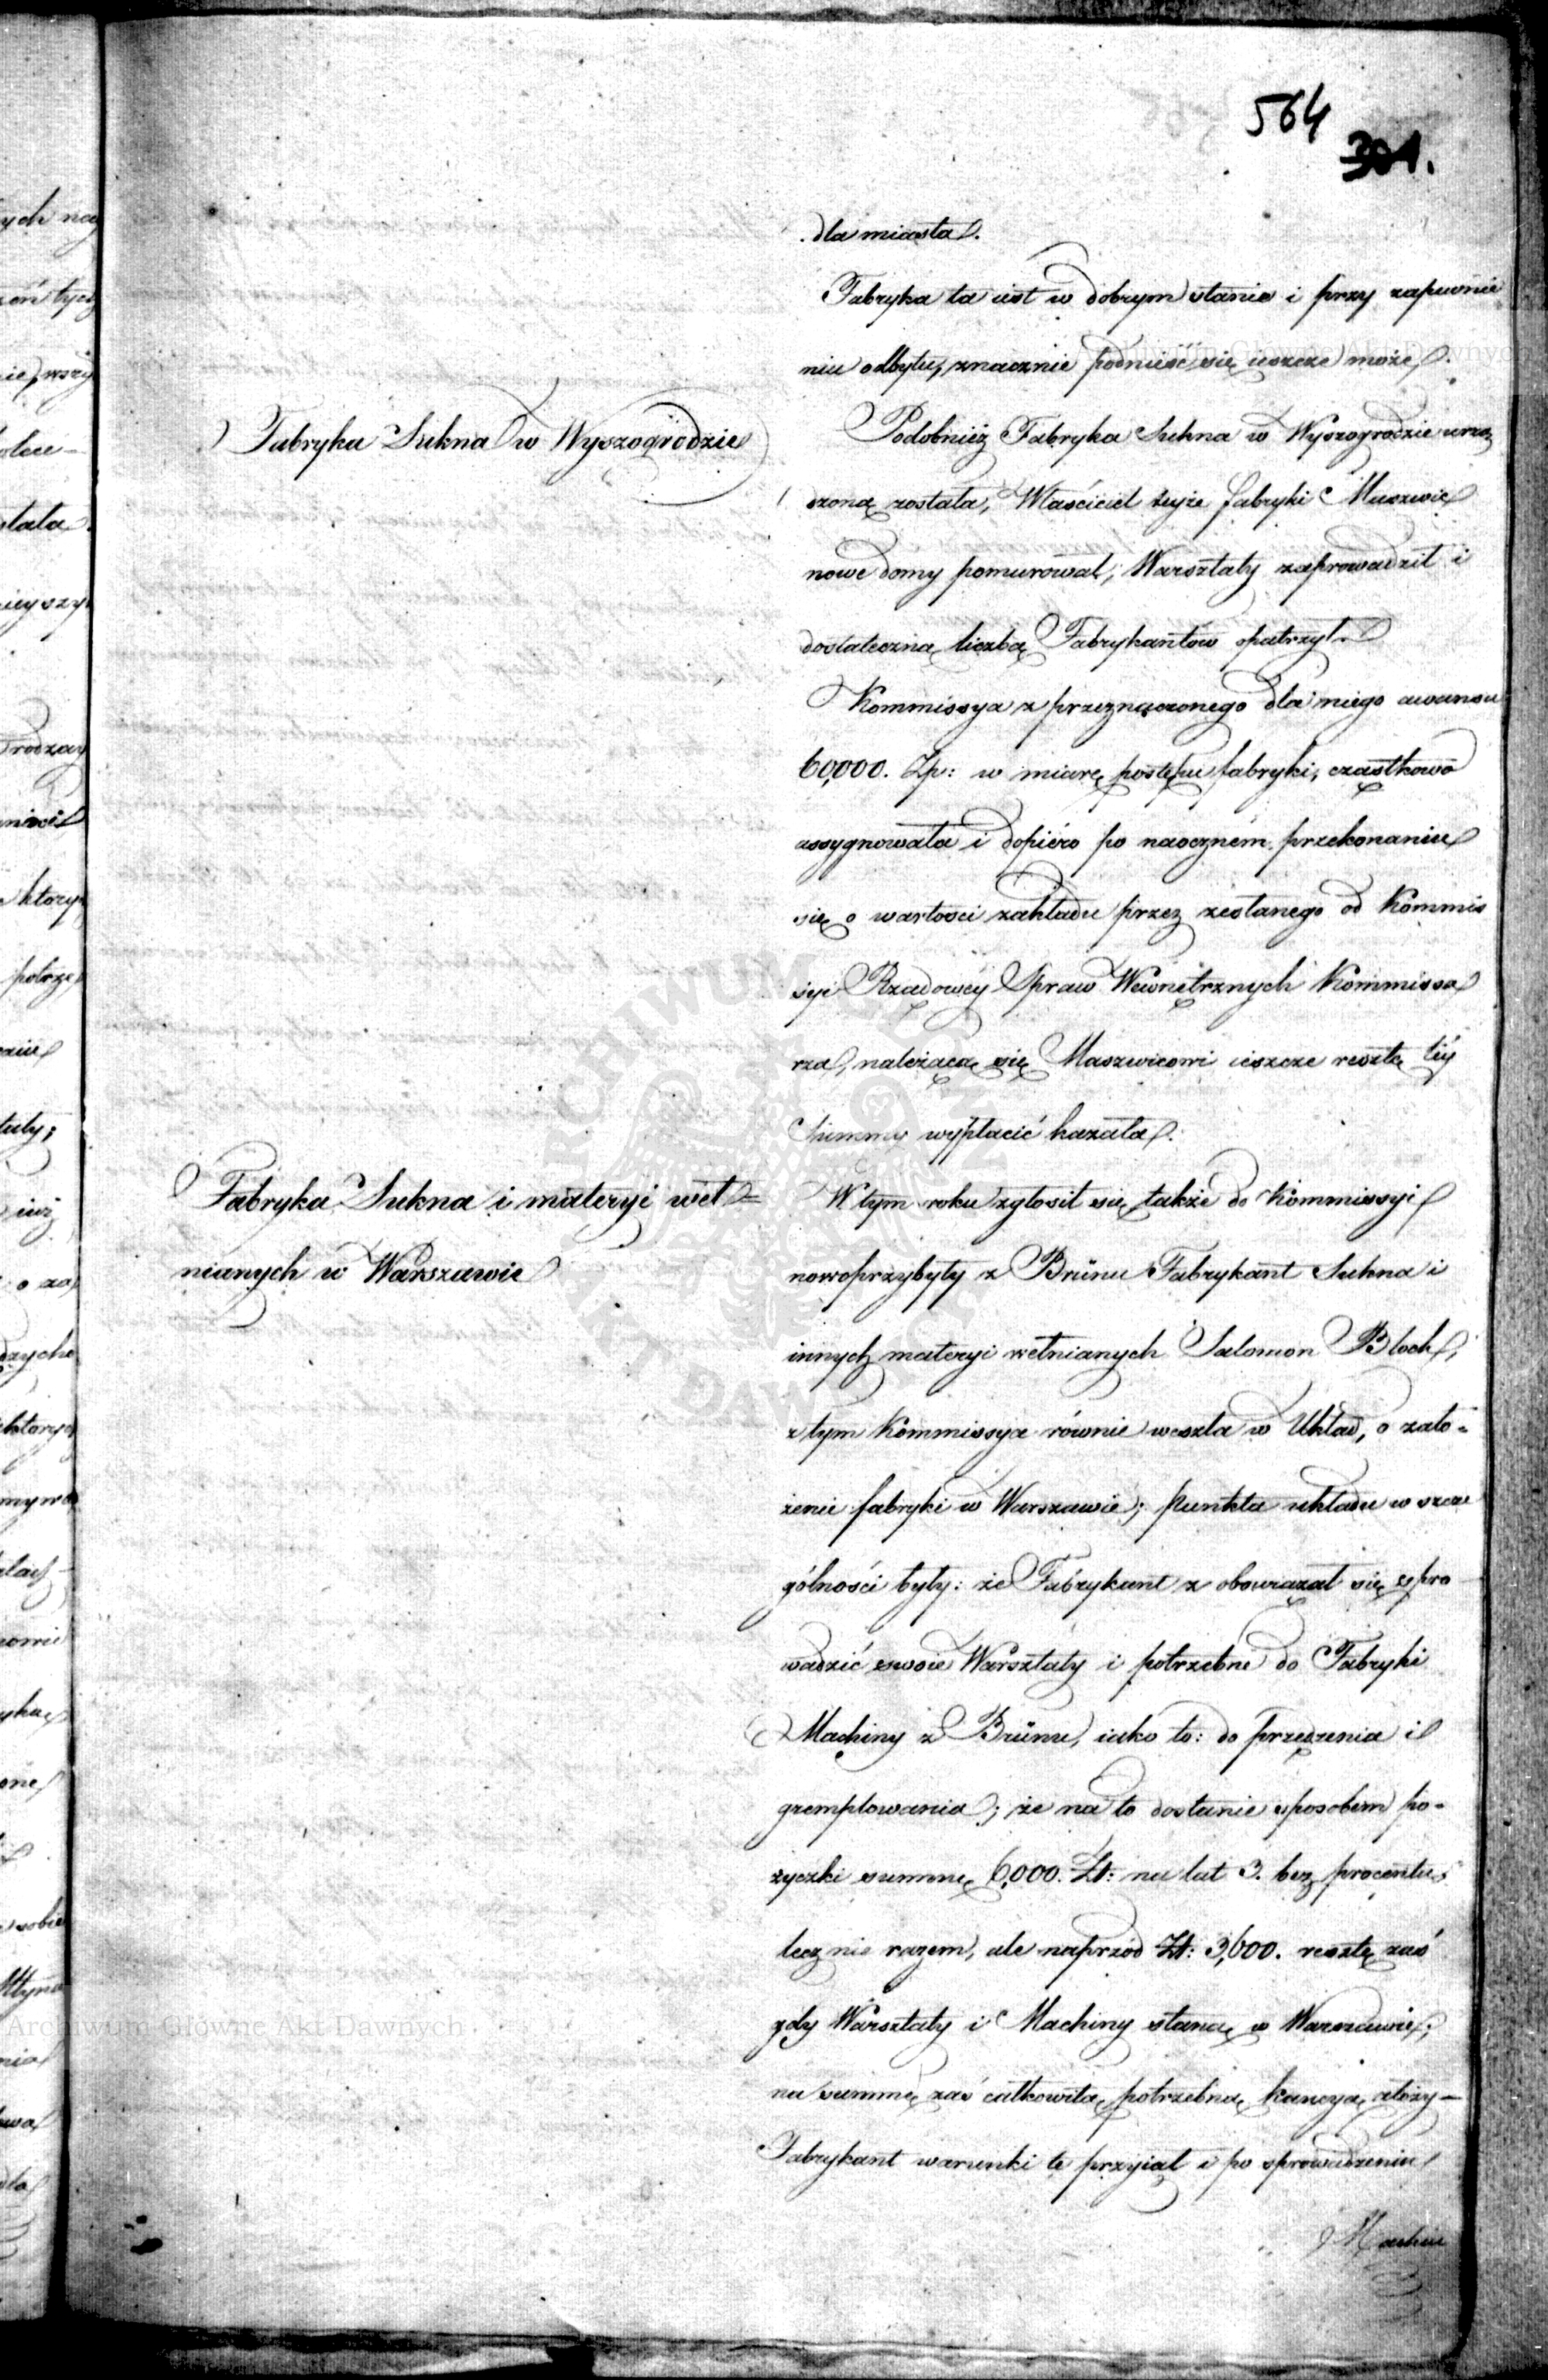 564
301.
dla miasta.
Fabryka ta iest w dobrym stanie i przy zapewnie
niu odbytu, znacznie podnieść się ieszcze może.
Fabryka Sukna w Wyszogrodzie
Podobnież Fabryka Sukna w Wyszogrodzie urzą
dzoną została, Właściciel teyże fabryki Maszwic
nowe domy pomurował, Warsztaty zaprowadził i
dostateczną liczbą Fabrykantów opatrzył.
Kommissya z przeznaczonego dla niego awansu
60,000. Zp: w miarę postępu fabryki, cząstkowo
assygnowała i dopiéro po naoczném przekonaniu
się o wartości zakładu przez zesłanego od Kommis
syi Rządowéy Spraw Wewnętrznych Kommissa
rza, należącą się Maszwicowi ieszcze resztę téy
Summy wypłacić kazała.
Fabryka Sukna i materyi weł=
nianych w Warszawie
W tym roku zgłosił się także do Kommissyi
nowoprzybyły z Brünu Fabrykant Sukna i
innych materyi wełnianych Salomon Bloch,
z tym Kommissya równie weszła w Układ, o zało-
żenie fabryki w Warszawie; punkta układu w szcze
gólności były: że Fabrykant z obowiązał się spro
wadzić swoie Warsztaty i potrzebne do Fabryki
Machiny z Brünu, iako to: do przędzenia i
gremplowania; że na to dostanie sposobem po-
życzki summę 6,000. Zł: na lat 3. bez procentu,
lecz nie razem, ale naprzód Zł: 3,600. resztę zaś
gdy Warsztaty i Machiny staną w Warszawie;
na summę zaś całkowitą potrzebną kaucyą złoży-
Fabrykant warunki te przyiął i po sprowadzeniu
Machin
Archiwum Główne Akt Dawnych